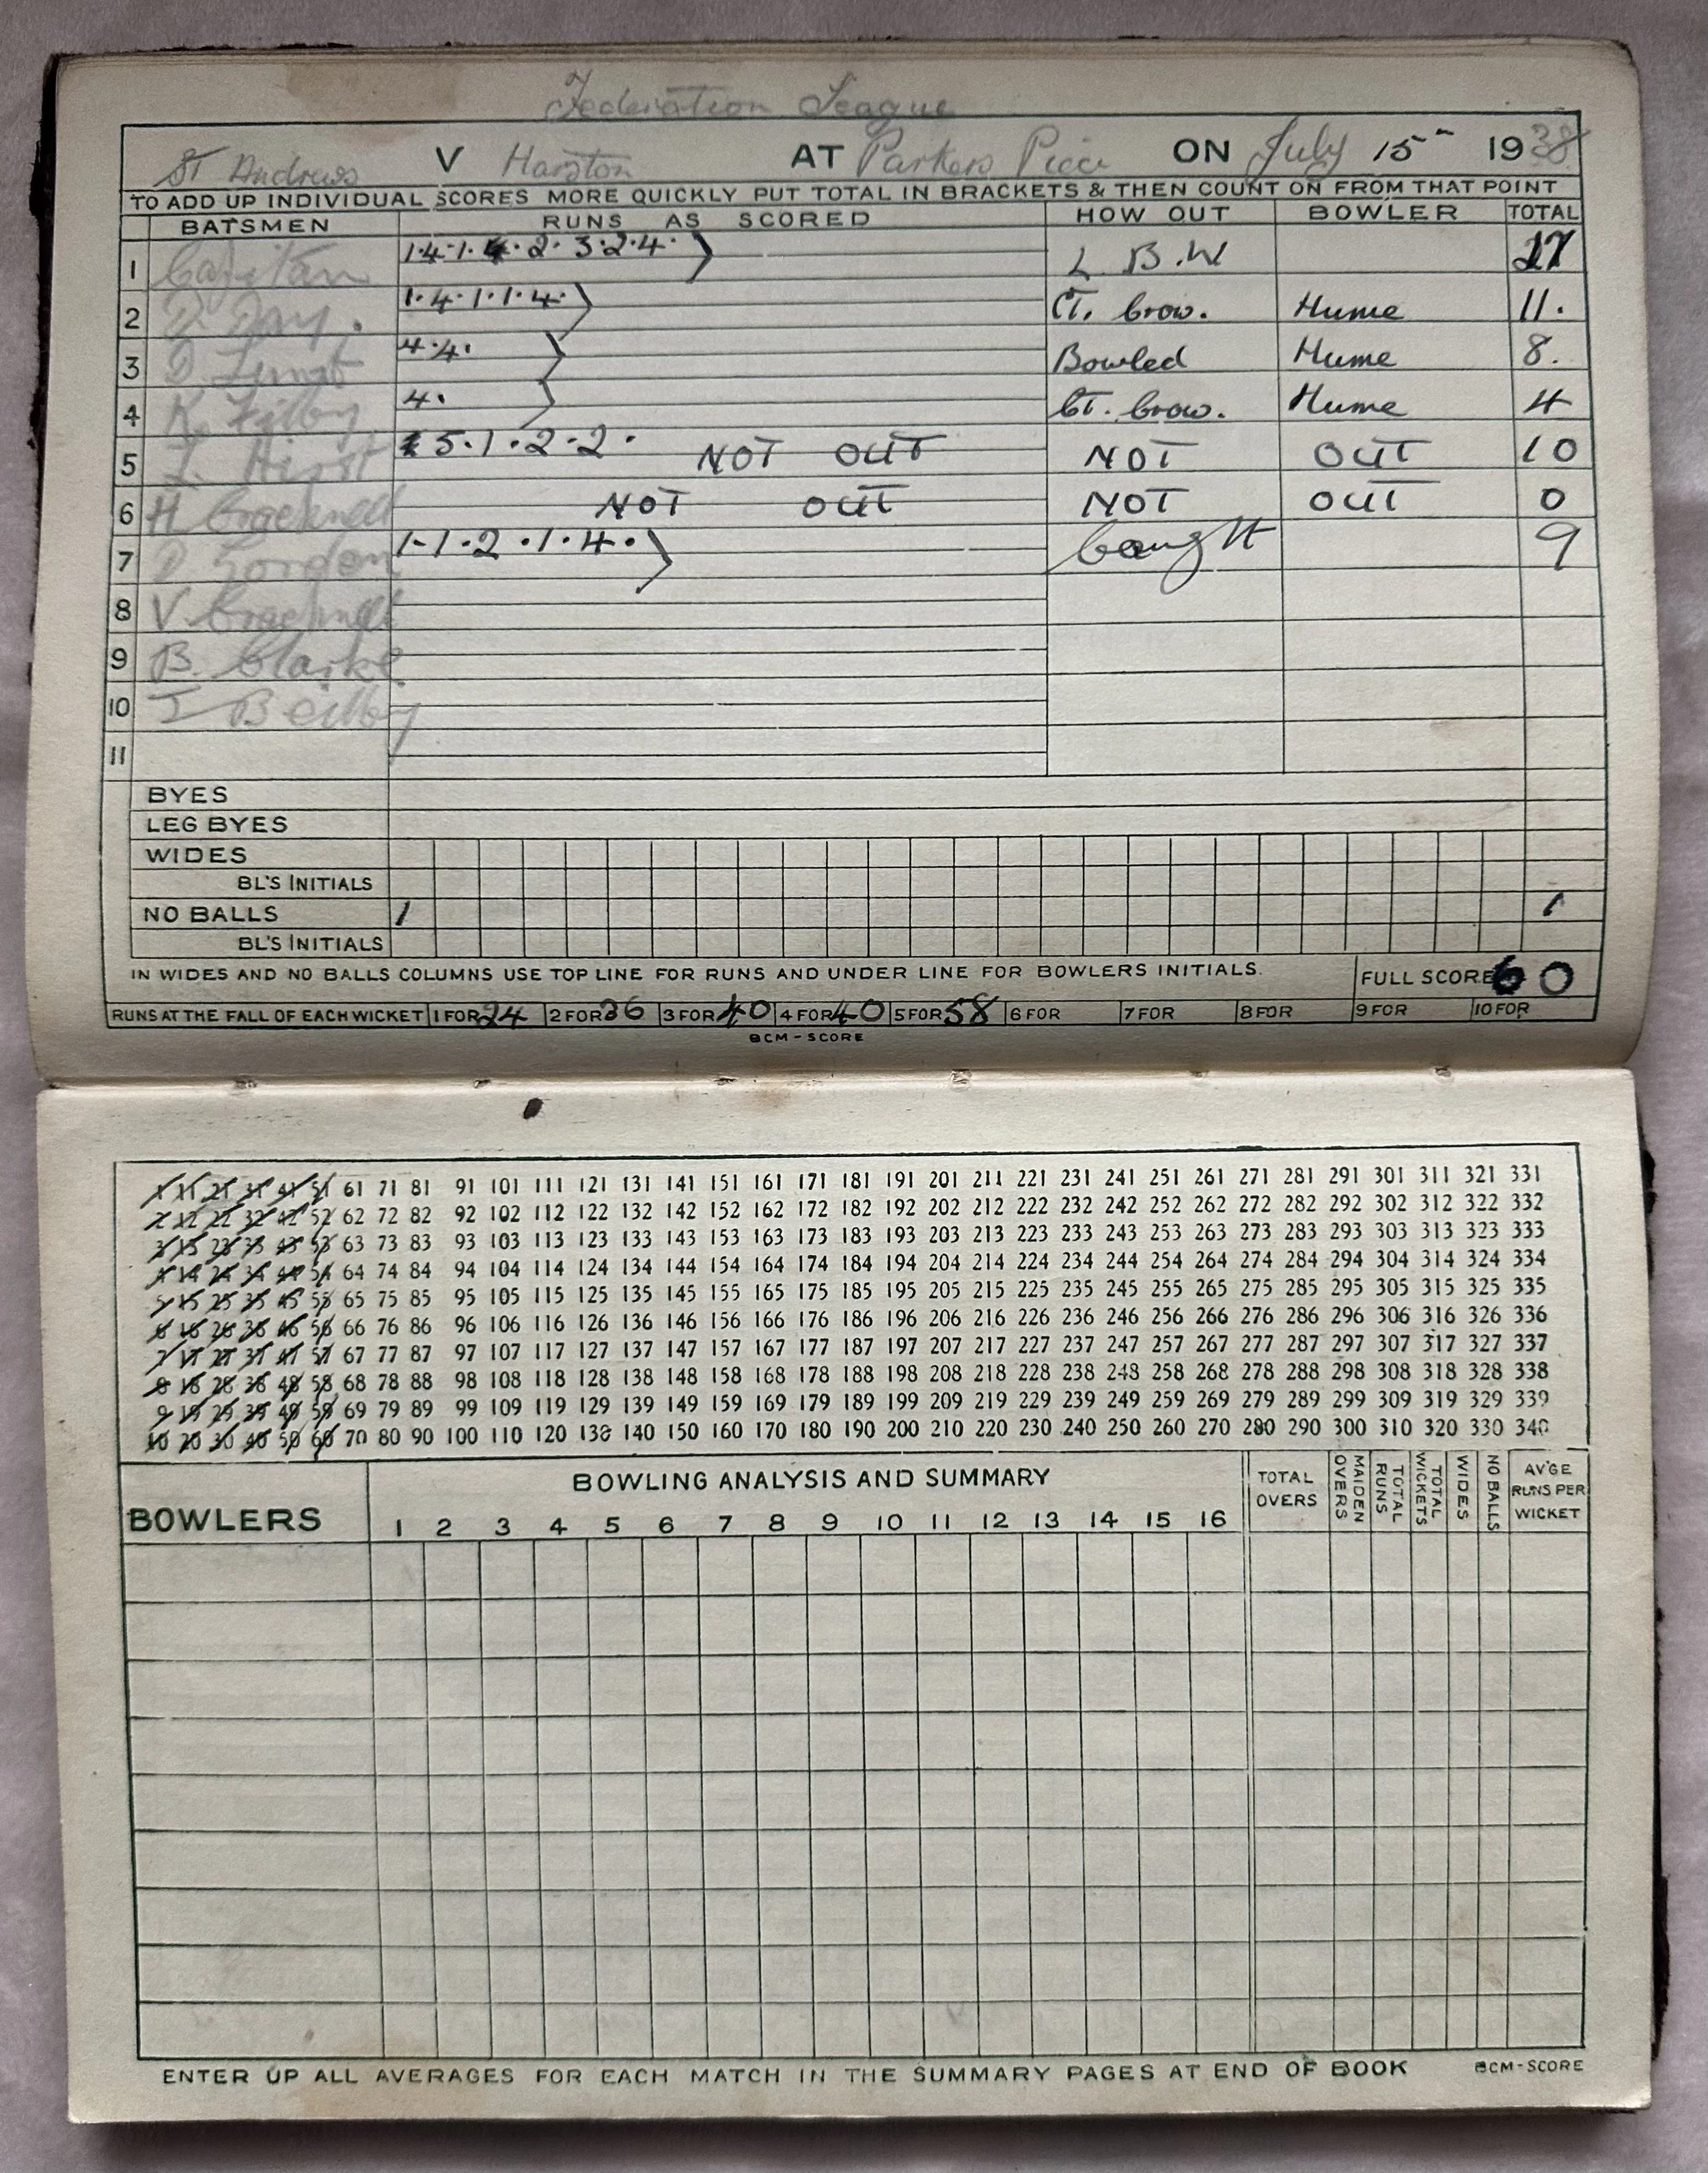 Federation League
St Andrews V Harston AT Parkers Piece ON July 15 1938
TO ADD UP INDIVIDUAL SCORES MORE QUICKLY PUT TOTAL IN BRACKETS & THEN COUNT ON FROM THAT POINT
BATSMEN RUNS AS SCORED HOW OUT BOWLER TOTAL
1 1·4·1·4·2·3·2·4· ) L.B.W
2 D. Day. 1·4·1·1·4· ) CT. Crow. Hume 11.
3 D. 4·4· ) Bowled Hume 8.
4 K. Filby 4· ) CT. Crow. Hume 4
5 5·1·2·2· NOT OUT NOT OUT 10
6 H NOT OUT NOT OUT 0
7 D Gordon 1·1·2·1·4· ) Caught 9
8 V.
9 B. Clarke.
10 Beilby
11
BYES
LEG BYES
WIDES
BL'S INITIALS
NO BALLS 1 1
BL'S INITIALS
IN WIDES AND NO BALLS COLUMNS USE TOP LINE FOR RUNS AND UNDER LINE FOR BOWLERS INITIALS. FULL SCORE 60
RUNS AT THE FALL OF EACH WICKET 1 FOR 24 2 FOR 36 3 FOR 40 4 FOR 40 5 FOR 58 6 FOR 7 FOR 8 FOR 9 FOR 10 FOR
BCM-SCORE
1 11 21 31 41 51 61 71 81 91 101 111 121 131 141 151 161 171 181 191 201 211 221 231 241 251 261 271 281 291 301 311 321 331
2 12 22 32 42 52 62 72 82 92 102 112 122 132 142 152 162 172 182 192 202 212 222 232 242 252 262 272 282 292 302 312 322 332
3 13 23 33 43 53 63 73 83 93 103 113 123 133 143 153 163 173 183 193 203 213 223 233 243 253 263 273 283 293 303 313 323 333
4 14 24 34 44 54 64 74 84 94 104 114 124 134 144 154 164 174 184 194 204 214 224 234 244 254 264 274 284 294 304 314 324 334
5 15 25 35 45 55 65 75 85 95 105 115 125 135 145 155 165 175 185 195 205 215 225 235 245 255 265 275 285 295 305 315 325 335
6 16 26 36 46 56 66 76 86 96 106 116 126 136 146 156 166 176 186 196 206 216 226 236 246 256 266 276 286 296 306 316 326 336
7 17 27 37 47 57 67 77 87 97 107 117 127 137 147 157 167 177 187 197 207 217 227 237 247 257 267 277 287 297 307 317 327 337
8 18 28 38 48 58 68 78 88 98 108 118 128 138 148 158 168 178 188 198 208 218 228 238 248 258 268 278 288 298 308 318 328 338
9 19 29 39 49 59 69 79 89 99 109 119 129 139 149 159 169 179 189 199 209 219 229 239 249 259 269 279 289 299 309 319 329 339
10 20 30 40 50 60 70 80 90 100 110 120 130 140 150 160 170 180 190 200 210 220 230 240 250 260 270 280 290 300 310 320 330 340
BOWLERS BOWLING ANALYSIS AND SUMMARY TOTAL OVERS MAIDEN OVERS TOTAL RUNS TOTAL WICKETS WIDES NO BALLS AV'GE RUNS PER WICKET
1 2 3 4 5 6 7 8 9 10 11 12 13 14 15 16
ENTER UP ALL AVERAGES FOR EACH MATCH IN THE SUMMARY PAGES AT END OF BOOK BCM-SCORE